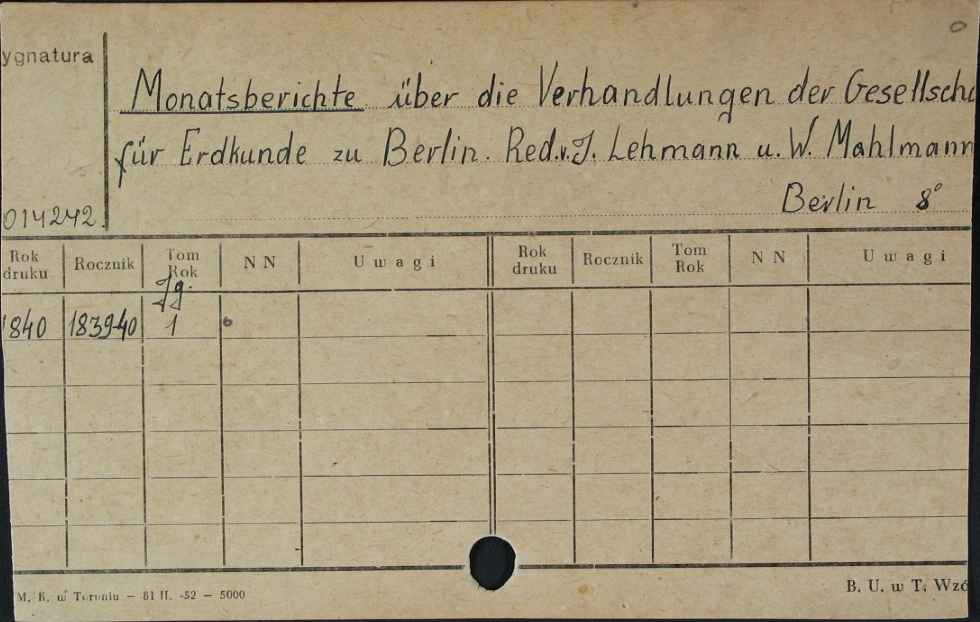 ygnatura
Monatsberichte über die Verhandlungen der Gesellscha
für Erdkunde zu Berlin. Red.v.J. Lehmann u. W. Mahlmann
Berlin 8°
014242.
Rok druku Rocznik Tom Rok N N U w a g i Rok druku Rocznik Tom Rok N N U w a g i
Jg.
1840 1839-40 1
M. K. w Toruniu — 81 II. -52 — 5000
B. U. w T. Wzó